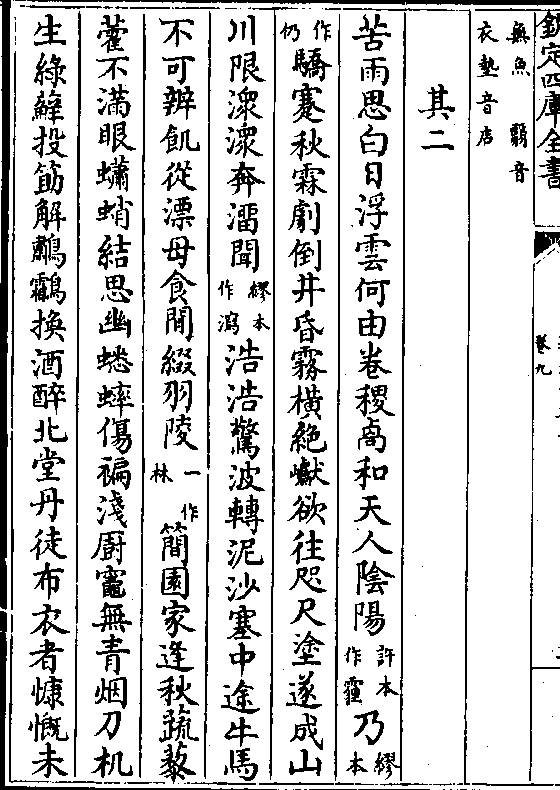 欽定四庫全書
卷九
無魚　翳音
衣墊音店
其二
苦雨思白日浮雲何由卷稷卨和天人陰陽許本作霾乃繆本
作仍驕蹇秋霖劇倒井昏霧橫絶巘欲往咫尺塗遂成山
川限潀潀奔溜聞繆本作瀉浩浩驚波轉泥沙塞中途牛馬
不可辨飢從漂母食閒綴羽陵一作林簡園家逢秋蔬藜
藿不滿眼蠨蛸結思幽蟋蟀傷褊淺廚竈無青烟刀机
生綠蘚投筯解鷫鸘換酒醉北堂丹徒布衣者慷慨未